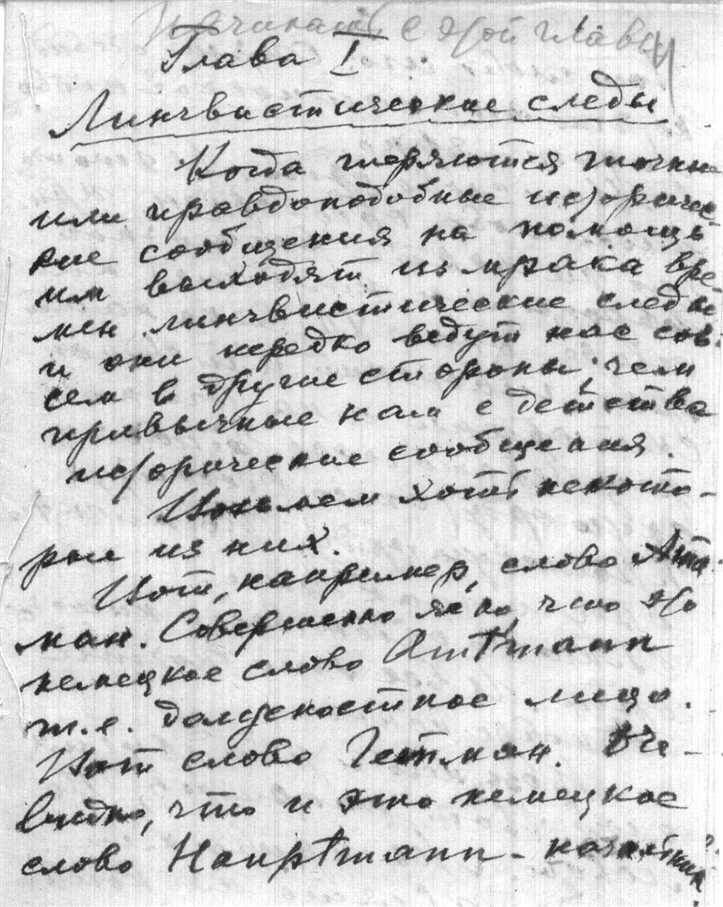 Начинать с этой главы
Глава I
Лингвистические следы
Когда теряются точные
или правдоподобные историчес-
кие сообщения на помощь
им выходят из мрака вре-
мен лингвистические следы
и они нередко ведут нас сов-
сем в другие стороны, чем
привычные нам с детства
исторические сообщения.
Возьмем хоть некото-
рые из них.
Вот, например, слово Ата-
ман. Совершенно ясно, что это
немецкое слово Amtmann
т.е. должностное лицо.
Вот слово Гетман. Оче-
видно, что и это немецкое
слово Hauptmann - начальник.